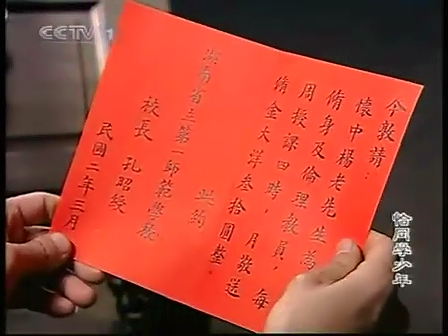 CCTV 1
今敦請：
懷中楊老先生為
脩身及倫理教員，每
周授課四時，月敬送
脩金大洋叁拾圓整。
此約
湖南省立第一師範學校
校長 孔昭綬
民國二年三月
恰同學少年